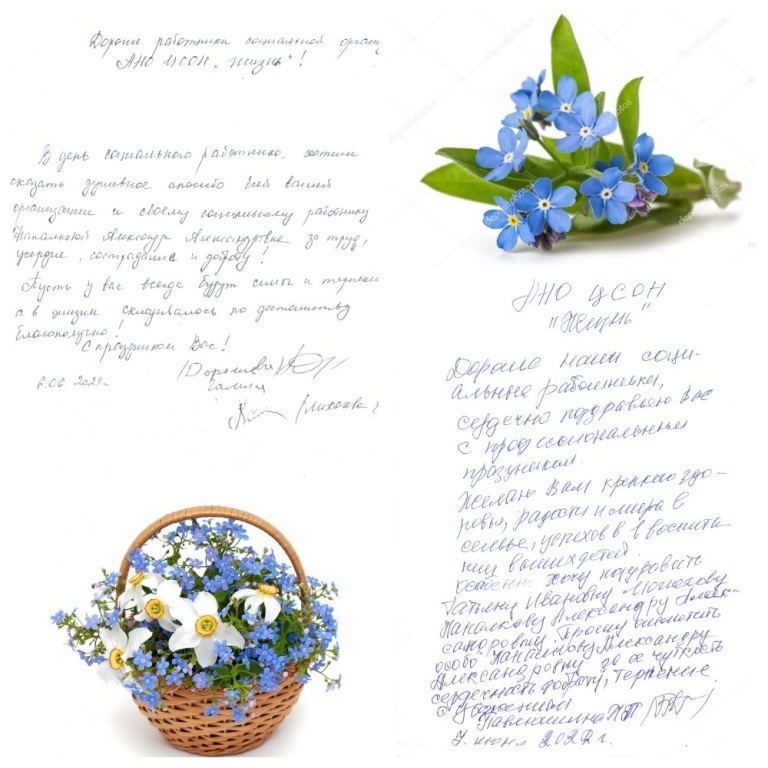 Дорогие работники социальной
АНО ЦСОН „Жизнь"!
В день социального работника хотим
сказать душевное спасибо всей вашей
организации и своему социальному работнику
Александре Александровне за труд,
усердие, сострадание и доброту!
Пусть у вас всегда будут силы и
а в жизни складывалось по достоинству
Благополучно!
С праздником Вас!
6.06.
АНО ЦСОН
"Жизнь"
Дорогие наши соци-
альные работники,
сердечно поздравляю Вас
с профессиональным
праздником.
Желаю Вам крепкого здо-
ровья, радости и мира в
семье, успехов в воспита-
нии ваших детей.
Особенно хочу поздравить
Татьяну Ивановну
Александру Алек-
сандровну. Прошу отметить
особо Александру
Александровну за её чуткость
сердечность доброту, терпение.
С уважением
7 июня 2022 г.
depositphotos